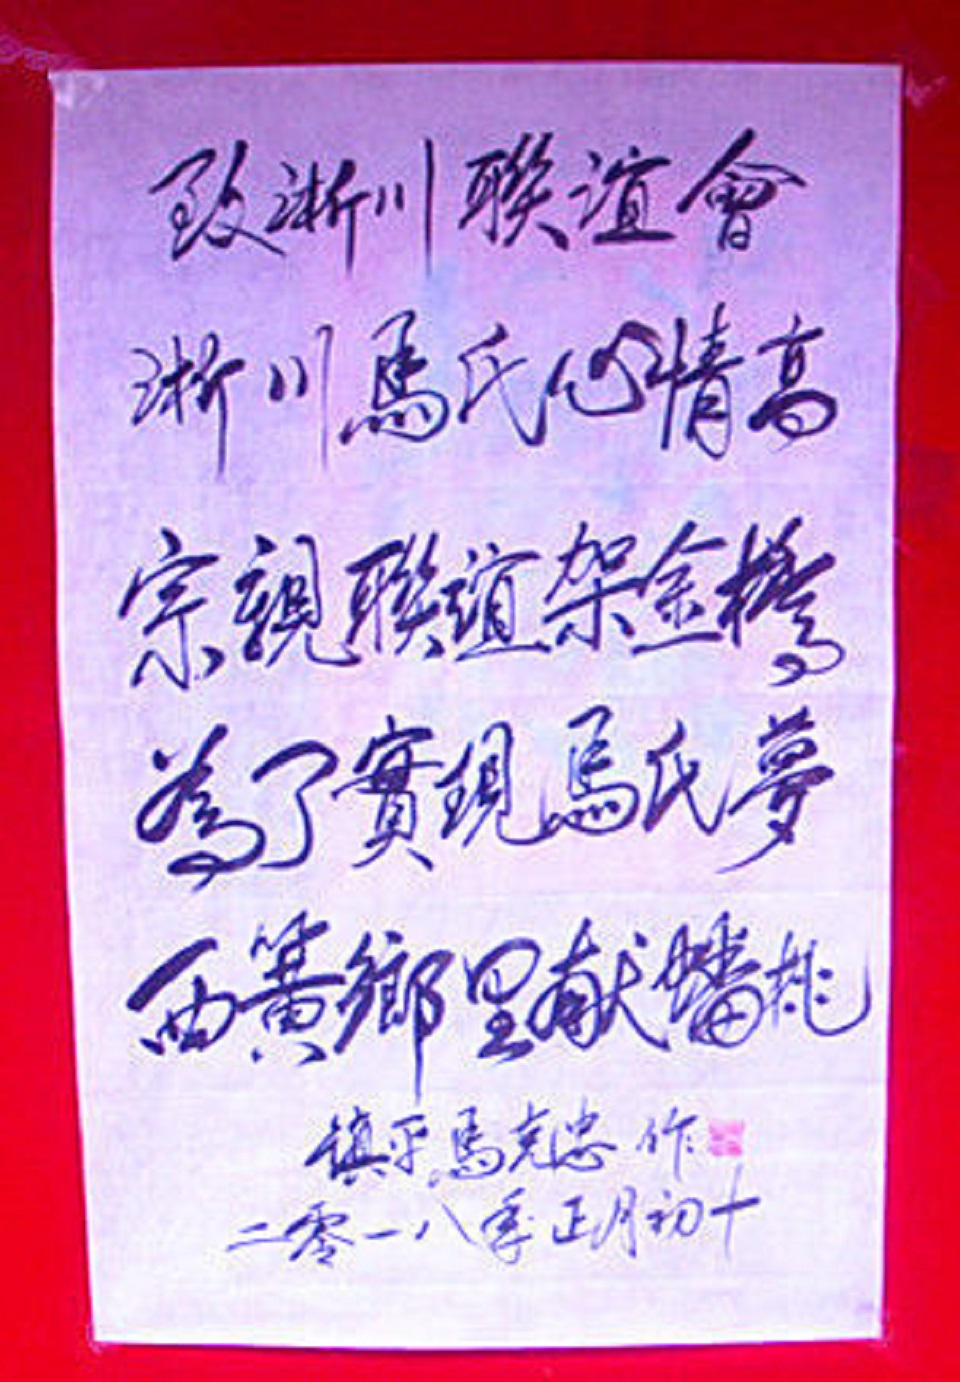 致淅川聯誼會
淅川馬氏心情高
宗親聯誼架金橋
為了實現馬氏夢
西簧鄉里献蟠桃
鎮平馬克忠作
二零一八季正月初十